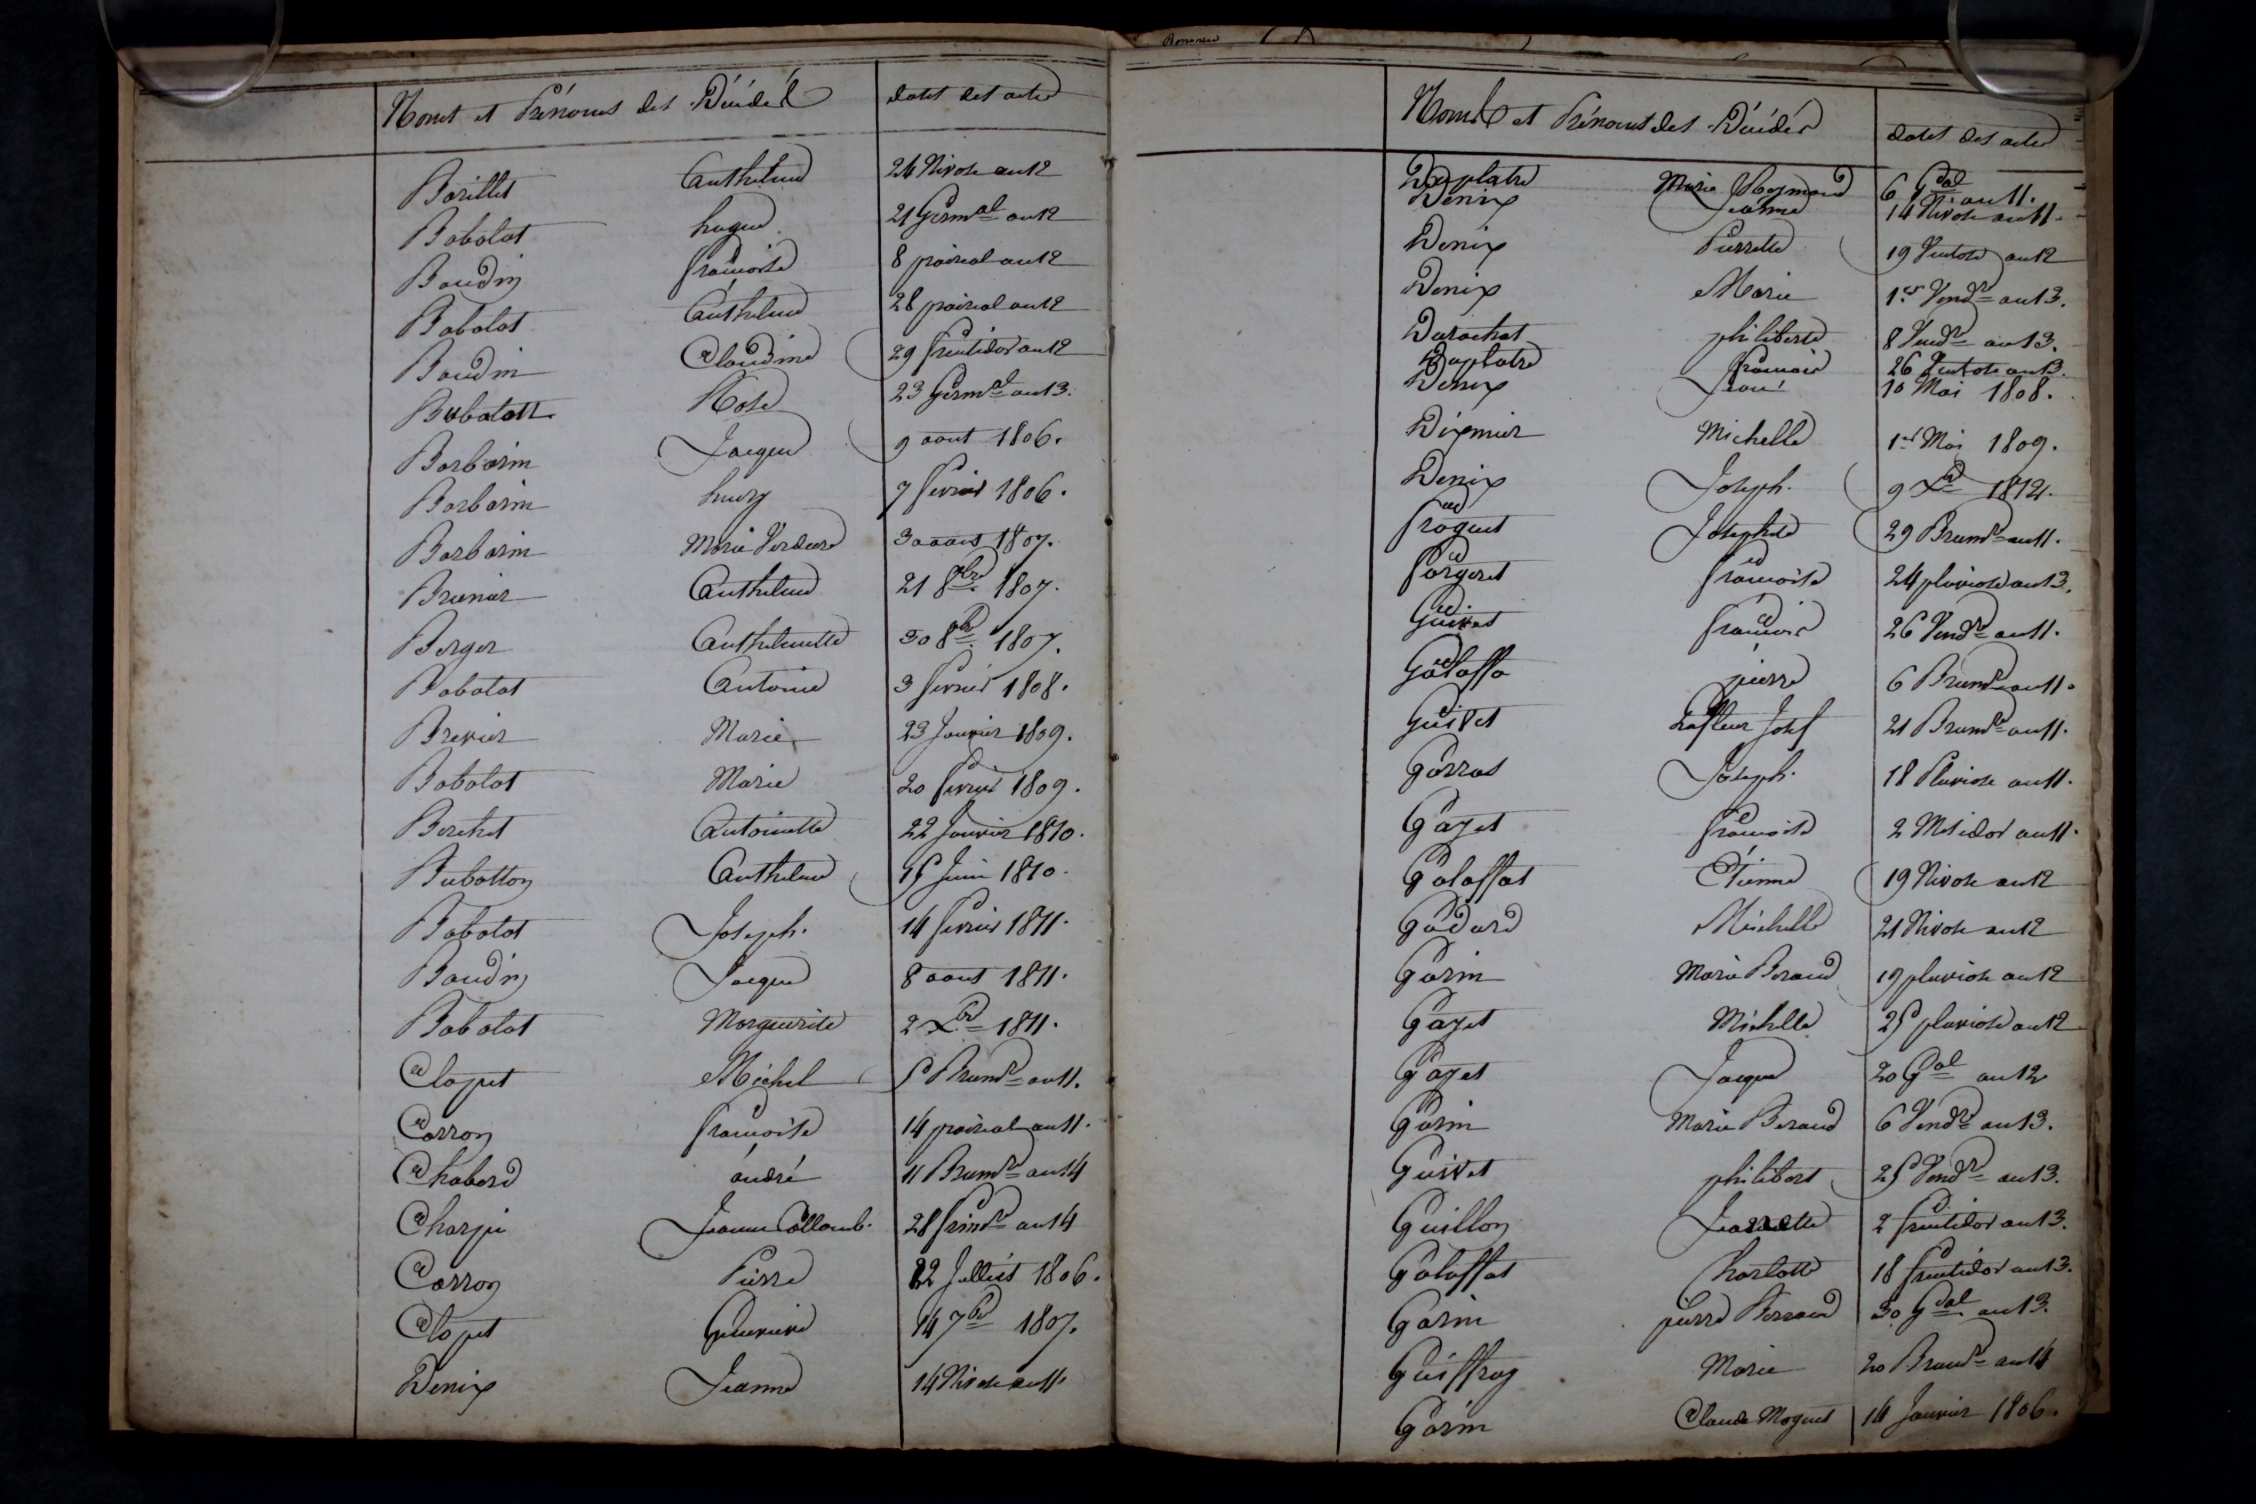 Noms et Prénoms des Décédés dates des actes
Barillet Anthelme 24 Nivose an 12
Babolat hugue 21 Germal an 12
Baudin françoise 8 prairial an 12
Babolat Anthelme 28 prairial an 12
Baudin Claudine 29 fructidor an 12
Bubatott Rose 23 Germal an 13.
Barbarin Jacque 9 aout 1806.
Barbarin henry 7 fevrier 1806.
Barbarin Marie Verdure 30 aout 1807.
Brunier Anthelme 21 8bre 1807.
Berger Anthelmette 30 8bre 1807.
Babolat Antoine 3 fevrier 1808.
Brevier Marie 23 Janvier 1809.
Babolat Marie 20 fevrier 1809.
Berchet Antoinette 22 Janvier 1810.
Bubatton Anthelme 15 Juin 1810.
Babolat Joseph. 14 fevrier 1811.
Baudin Jacque 8 aout 1811.
Babolat Marguerite 2 Xbre 1811.
Clopet Michel 5 Brumre an 11.
Carron françoise 14 prairial an 11.
Chaberd andré 11 Brumre an 14
Charpie Jeanne Collomb. 28 frimre an 14
Carron Pierre 22 Julliet 1806.
Clopet Genevieve 14 7bre 1807.
Denix Jeanne 14 Nivose an 11
Noms et Prénoms des Décédés dates des actes
Duplatre Marie Reymond 6 Gal an 11.
Denix Jeanne 14 Nivose an 11.
Denix Pierrette 19 Ventose an 12
Denix Marie 1er Vendre an 13.
Durochat philiberte 8 Vendre an 13.
Duplatre françois 26 Ventose an 13.
Denix Jean 10 Mai 1808.
Dixmier Michelle 1er Mai 1809.
Denix Joseph. 9 Xbre 1812.
fraquet Josephte 29 Brumre an 11.
forgeret françoise 24 pluviose an 13.
Guivet françois 26 Vendre an 11.
Galaffa pierre 6 Brumre an 11.
Guivet Lafleur Josef 21 Brumre an 11.
Garras Joseph. 18 Pluviose an 11.
Gayet françoise 2 Mesidor an 11.
Galaffat Étienne 19 Nivose an 12
Gadard Michelle 21 Nivose an 12
Garin Marie Beraud 19 pluviose an 12
Gayet Michelle 25 pluviose an 12
Gayet Jacque 20 Gal an 12
Garin Marie Beraud 6 Vendre an 13.
Guivet philibert 25 Vendre an 13.
Guillon Jeannette 2 fructidor an 13.
Galaffat Charlotte 18 fructidor an 13.
Garin pierre Berraud 30 Gal an 13.
Guiffray Marie 20 Brumre an 14
Garin Claude Moguet 14 Janvier 1806.